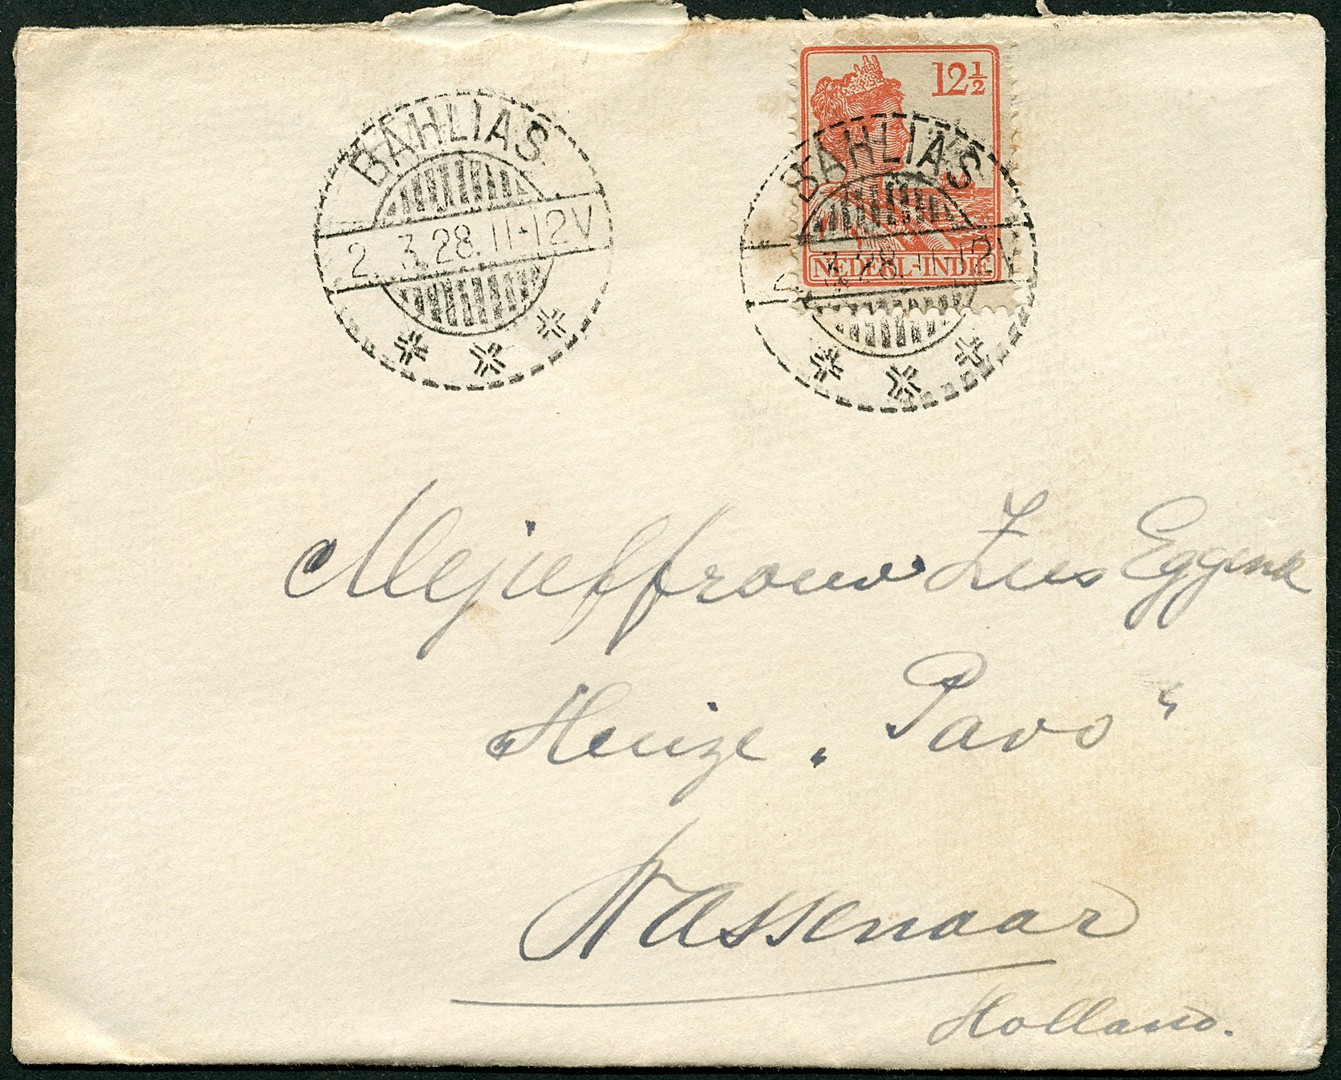 BAHLIAS
2. 3.28.11-12V
12½
NEDERL-INDIE
BAHLIAS
2. 3.28.11-12V
Mejuffrouw Zus Eggink
Huize „Pavo"
Wassenaar
Holland.